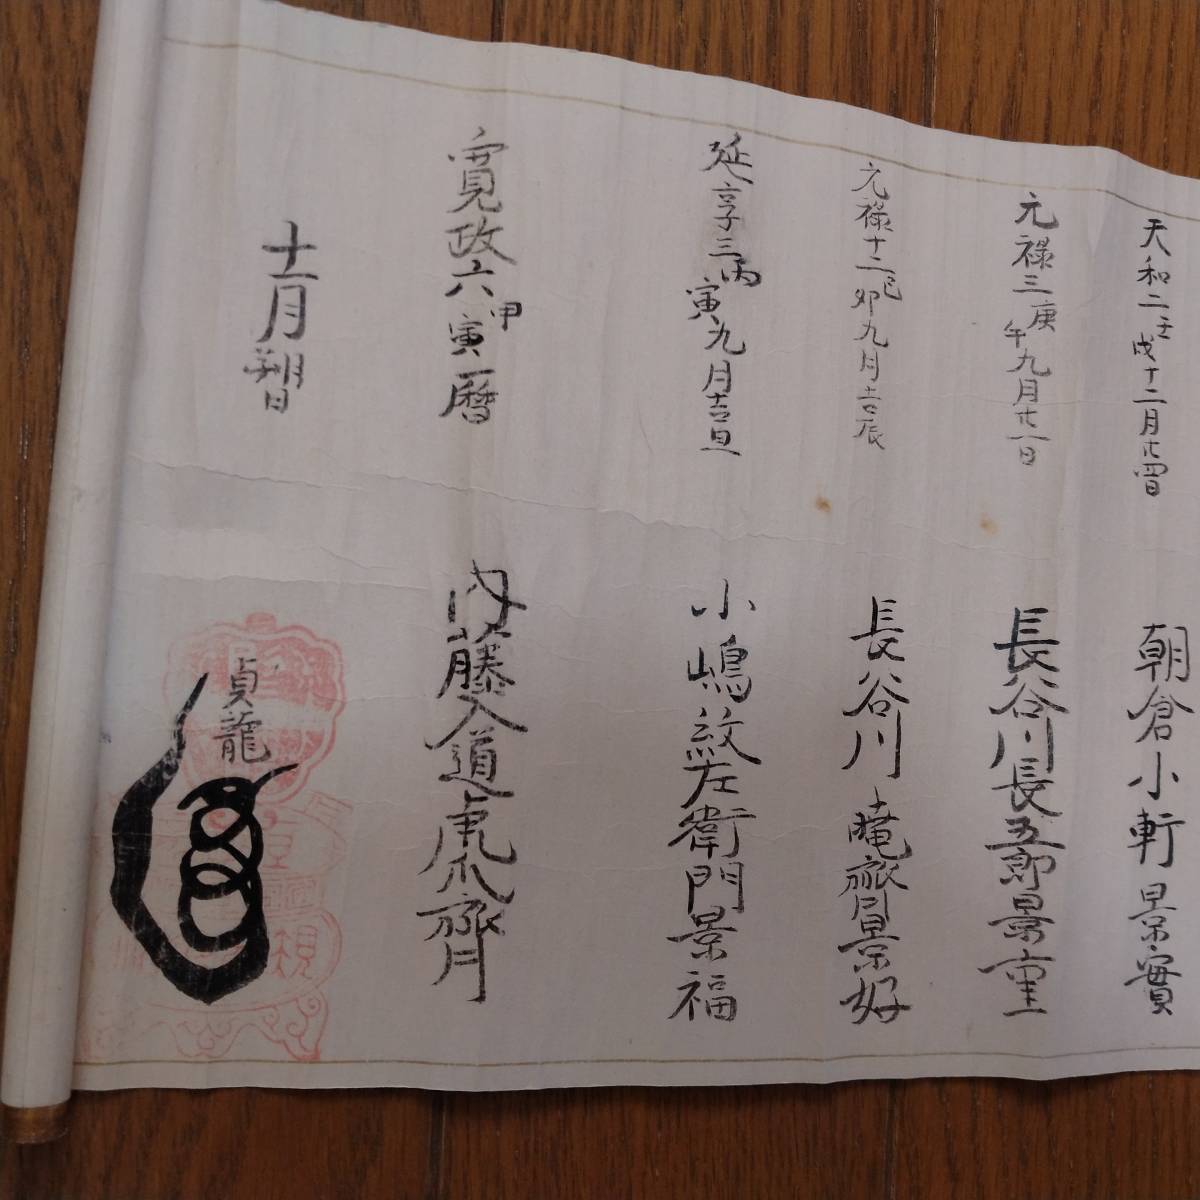 天和二壬戌十二月廿四日
朝倉小軒景實
元禄三庚午九月廿一日
長谷川長五郎景重
元禄十二己卯九月吉辰
長谷川庵齋景好
延享三丙寅九月吉旦
小嶋紋左衛門景福
寛政六甲寅暦
内藤入道虎爪齋
十一月朔日
貞龍